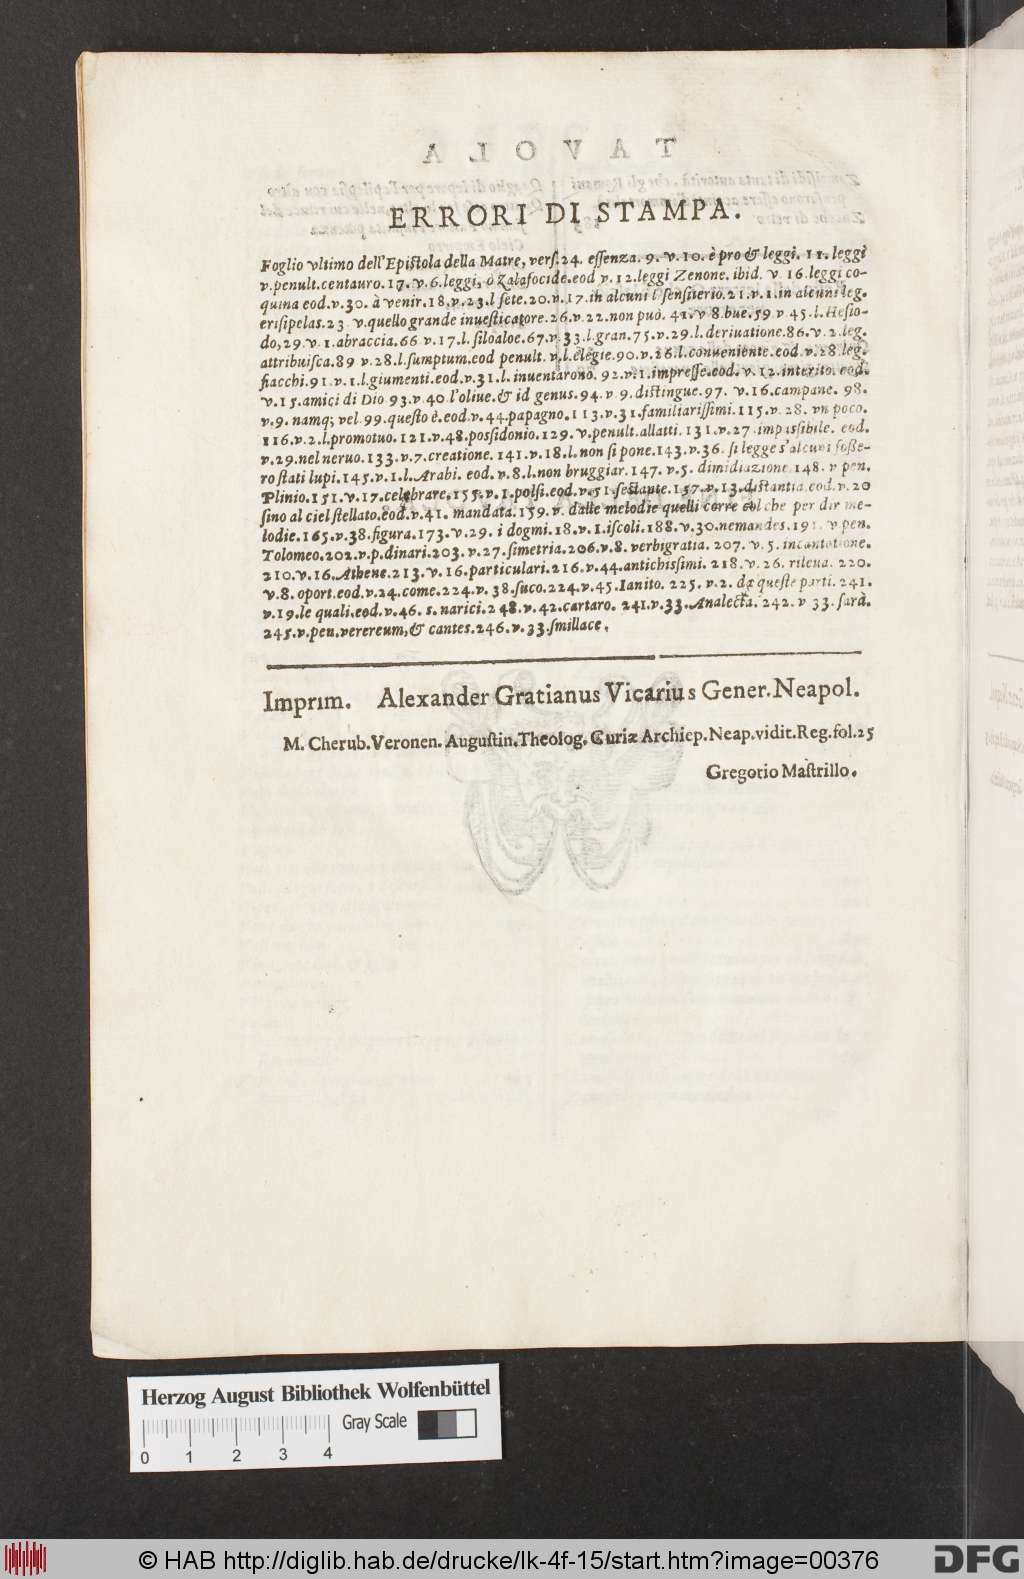 ERRORI DI STAMPA.
Foglio vltimo dell'Epistola della Matre, vers. 24. essenza. 9. v. 10. è pro & leggi. 11. leggi
v. penult. centauro. 17. v. 6. leggi, ò Zalafocide. eod v. 12. leggi Zenone. ibid. v. 16. leggi co-
quina eod. v. 30. à venir. 18. v. 23. l sete. 20. v. 17. in alcuni l sensitierio. 21. v. 1. in alcuni leg.
erisipelas. 23 v. quello grande inuesticatore. 26. v. 22. non può. 41. v 8. bue. 59 v 45. l. Hesio-
do, 29. v. 1. abraccia. 66 v. 17. l. siloaloe. 67. v. 33. l. gran. 75. v. 29. l. deriuatione. 86. v. 2. leg.
attribuisca. 89 v. 28. l. sumptum. eod penult. v. l. elegie. 90. v. 26. l. conueniente. eod. v. 28. leg.
fiacchi. 91. v. 1. l. giumenti. eod. v. 31. l. inuentarono. 92. v. 1. impresse. eod. v. 12. interito. eod.
v. 15. amici di Dio 93. v. 40. l'oliue. & id genus. 94. v 9. distingue. 97. v. 16. campane. 98.
v. 9. namq; vel. 99. questo è. eod. v. 44. papagno. 113. v. 31. familiarissimi. 115. v. 28. vn poco.
116. v. 2. l. promotuo. 121. v. 48. possidonio. 129. v. penult. allatti. 131. v. 27. impassibile. eod.
v. 29. nel neruo. 133. v. 7. creatione. 141. v. 18. l. non si pone. 143. v. 36. si legge s'alcuni fosse-
ro stati lupi. 145. v. 1. l. Arabi. eod. v. 8. l. non bruggiar. 147. v. 5. dimidiazione. 148. v pen.
Plinio. 151. v. 17. celebrare. 155. v. 1. polsi. eod. v. 51. sestante. 157. v. 13. distantia. eod. v. 20
sino al ciel stellato. eod. v. 41. mandata. 159. v. dalle melodie quelli corre col che per dir me-
lodie. 165. v. 38. figura. 173. v. 29. i dogmi. 18. v. 1. iscoli. 188. v. 30. nemandes. 191. v pen.
Tolomeo. 202. v. p. dinari. 203. v. 27. simetria. 206. v. 8. verbigratia. 207. v. 5. incantatione.
210. v. 16. Athene. 213. v. 16. particulari. 216. v. 44. antichissimi. 218. v. 26. rileua. 220.
v. 8. oport. eod. v. 24. come. 224. v. 38. suco. 224. v. 45. Ianito. 225. v. 2. da queste parti. 241.
v. 19. le quali. eod. v. 46. s. narici. 248. v. 42. cartaro. 241. v. 33. Analecta. 242. v 33. sarà.
245. v. pen. verereum, & cantes. 246. v. 33. smillace.
Imprim. Alexander Gratianus Vicarius Gener. Neapol.
M. Cherub. Veronen. Augustin. Theolog. Curiæ Archiep. Neap. vidit. Reg. fol. 25
Gregorio Mastrillo.
Herzog August Bibliothek Wolfenbüttel
Gray Scale
0 1 2 3 4
© HAB http://diglib.hab.de/drucke/lk-4f-15/start.htm?image=00376
DFG